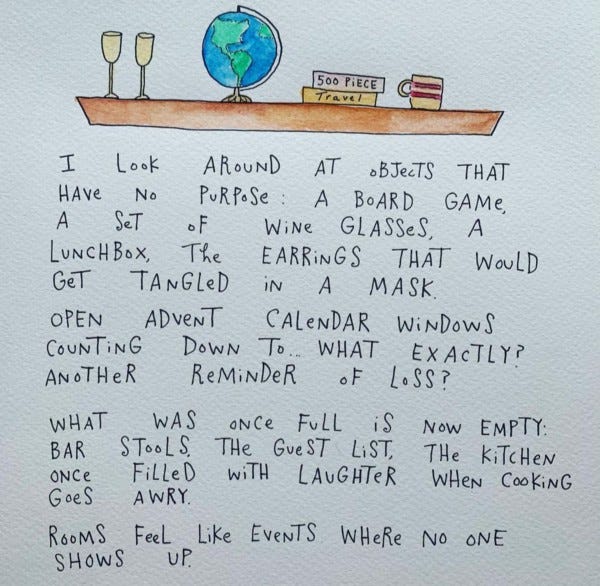 500 PiECE
Travel
I Look AROUND AT oBJEcTS THAT
HAVE No PURPoSe: A BoARD GAME,
A SeT oF WiNe GLASSeS, A
LUNCHBox, The EARRiNGS THAT WoULD
GeT TANGLeD iN A MASK.
OPEN ADVENT CALeNDAR WiNDOWS
COUNTiNG DowN To... WHAT EXAcTLY?
ANoTHeR ReMiNDeR oF LoSS?
WHAT WAS oNCe FuLL iS Now EMPTY:
BAR STooLS, THe GueST LiST, THe KiTCHeN
oNCe FiLLeD WiTH LAuGHTeR WHeN CooKiNG
GoeS AWRY.
RooMS FeeL LiKe EveNTS WHeRe No oNE
SHoWS UP.